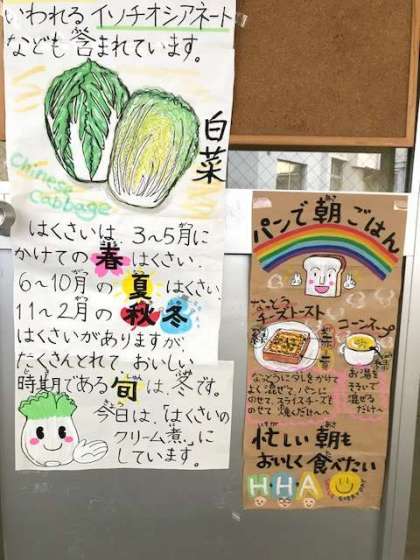 いわれるイソチオシアネート
なども含まれています。
白菜
Chinese
Cabbage
はくさいは、3~5月に
かけての春はくさい、
6~10月の夏はくさい、
11~2月の秋冬
はくさいがありますが
たくさんとれて、おいしい
時期である旬は、冬です。
今日は、「はくさいの
クリーム煮」に
しています。
パンで朝ごはん
なっとう
チーズトースト
コーンスープ
お湯を
そそいで
混ぜる
だけ〜
なっとうにタレをかけて
よく混ぜて、パンに
のせて、スライスチーズと
のせて焼くだけ〜
忙しい朝も
おいしく食べたい
H・H・A